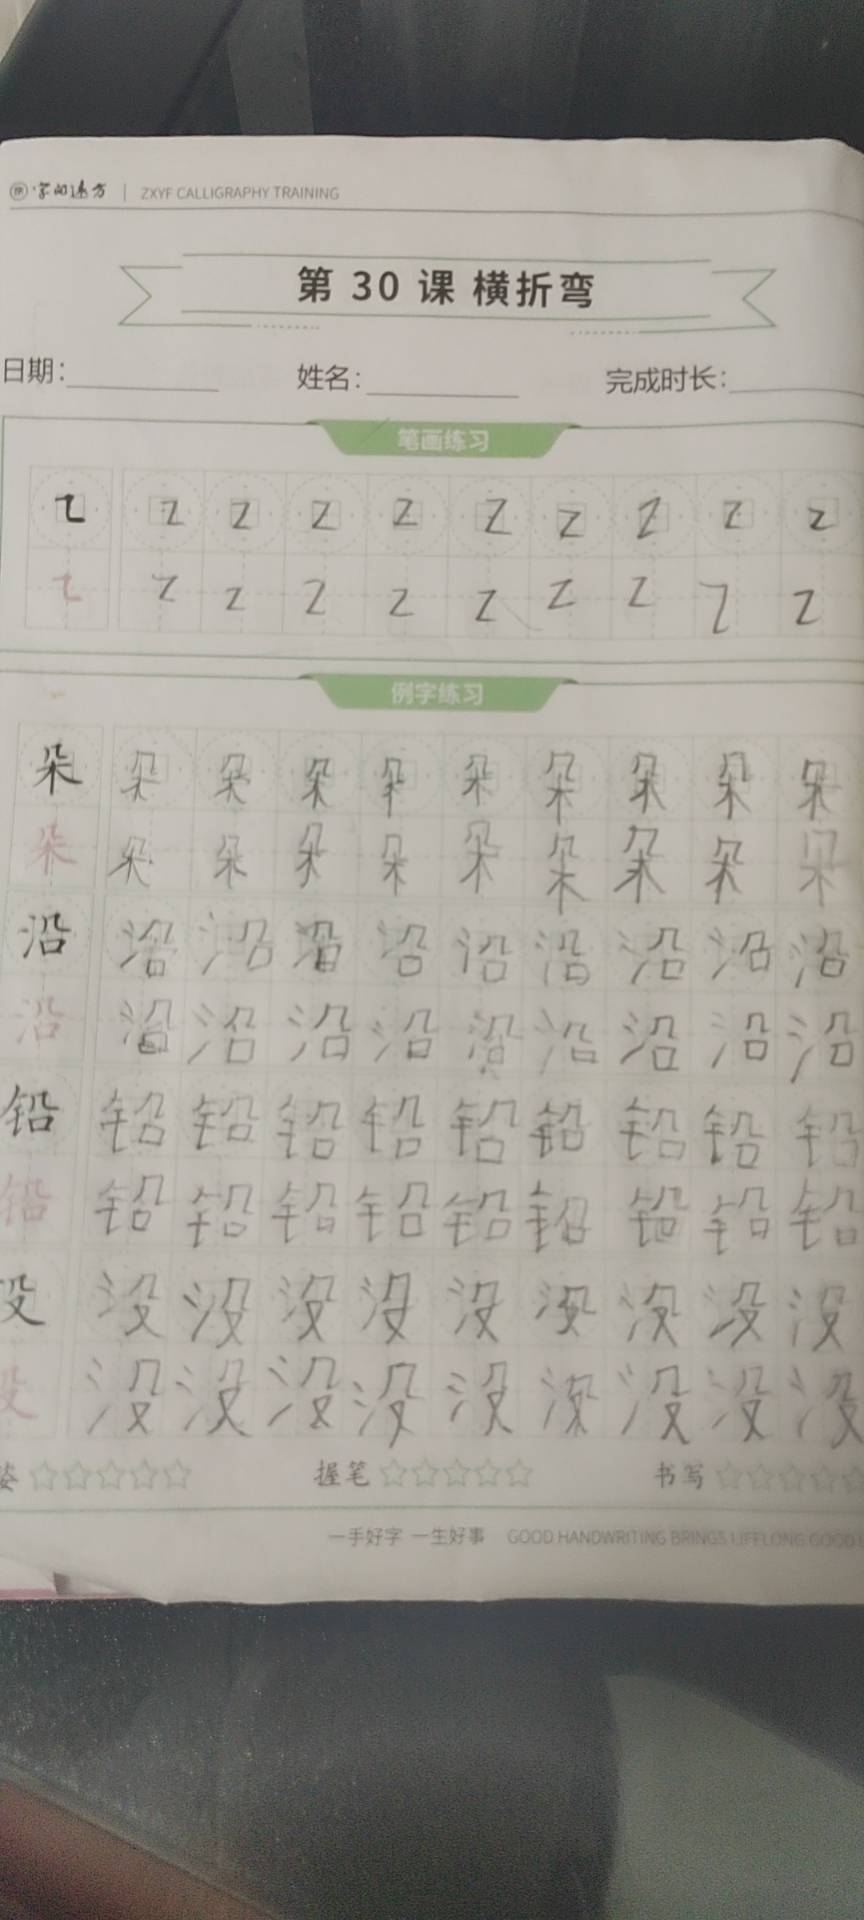 字的远方 | ZXYF CALLIGRAPHY TRAINING
第 30 课 横折弯
日期: 姓名: 完成时长:
笔画练习
例字练习
朵 朵 朵 朵 朵 朵 朵 朵 朵 朵
朵 朵 朵 朵 朵 朵 朵 朵 朵 朵
沿 沿 沿 沿 沿 沿 沿 沿 沿 沿
沿 沿 沿 沿 沿 沿 沿 沿 沿 沿
铅 铅 铅 铅 铅 铅 铅 铅 铅 铅
铅 铅 铅 铅 铅 铅 铅 铅 铅 铅
没 没 没 没 没 没 没 没 没 没
没 没 没 没 没 没 没 没 没 没
姿 握笔 书写
一手好字 一生好事 GOOD HANDWRITING BRINGS LIFELONG GOOD